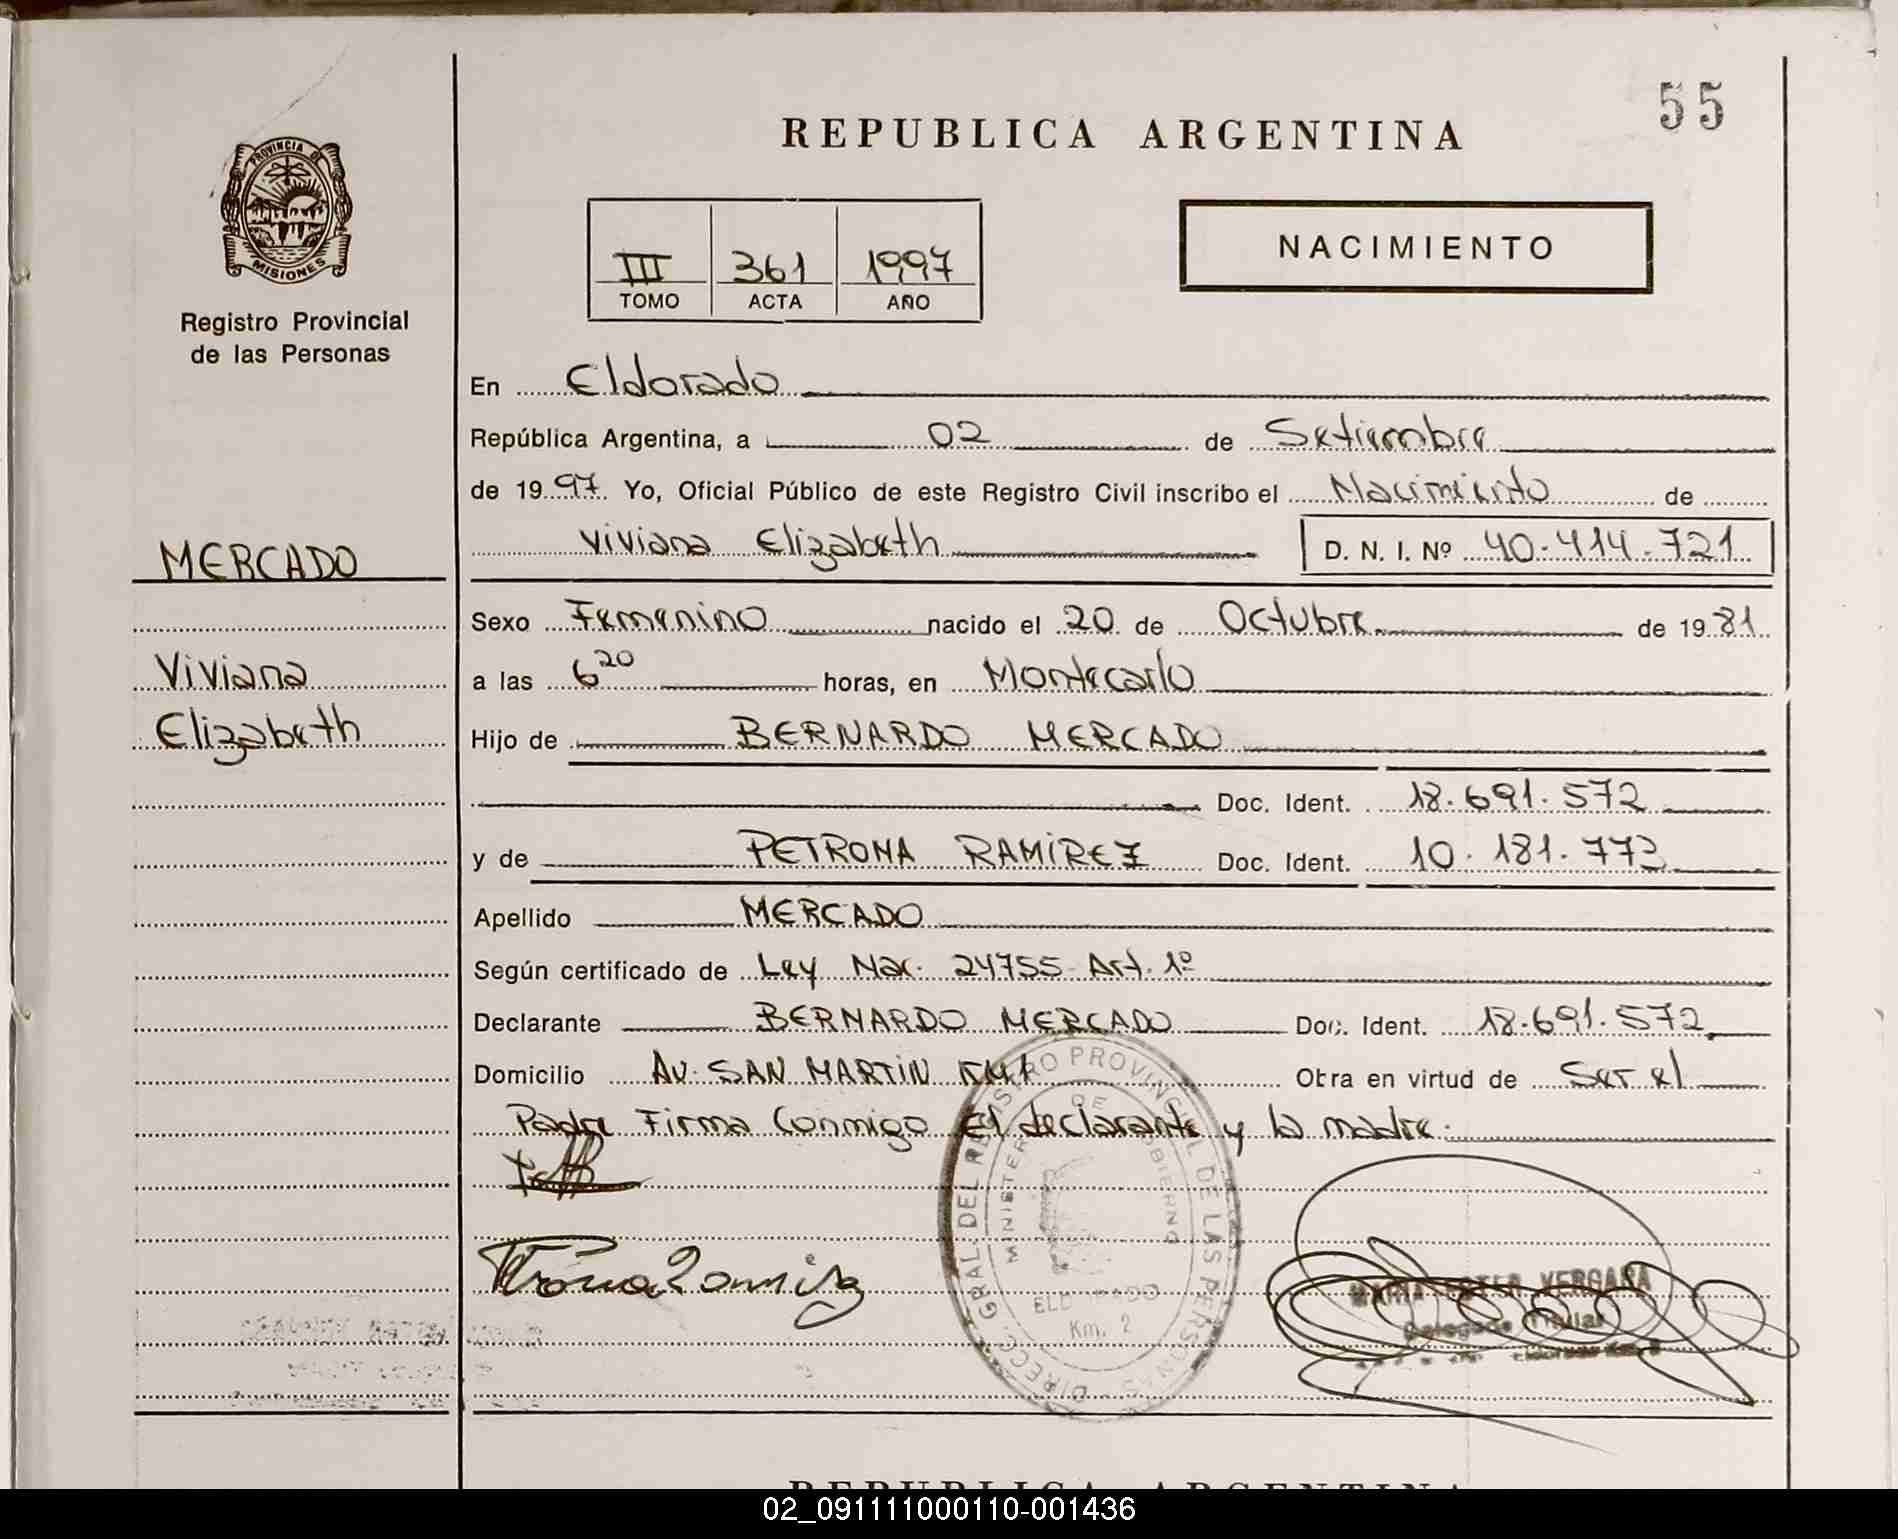 55
REPUBLICA ARGENTINA
PROVINCIA DE
MISIONES
Registro Provincial
de las Personas
III 361 1997
TOMO ACTA AÑO
NACIMIENTO
En Eldorado
República Argentina, a 02 de Setiembre
de 1997. Yo, Oficial Público de este Registro Civil inscribo el Nacimiento de
Viviana Elizabeth D. N. I. Nº 40.414.721
MERCADO
Viviana
Elizabeth
Sexo Femenino nacido el 20 de Octubre de 1981
a las 6 20 horas, en Montecarlo
Hijo de BERNARDO MERCADO
Doc. Ident. 18.691.572
y de PETRONA RAMIREZ Doc. Ident. 10.181.773
Apellido MERCADO
Según certificado de Ley Nac. 24755 Art. 1º
Declarante BERNARDO MERCADO Doc. Ident. 18.691.572
Domicilio AV. SAN MARTIN KM1 Obra en virtud de Ser el
Padre Firma Conmigo El declarante y la madre.
DIRECC. GRAL. DEL REGISTRO PROVINCIAL DE LAS PERSONAS
MINISTERIO DE GOBIERNO
ELDORADO
Km. 2
MARIA ESTER VERGARA
Delegada Titular
REPUBLICA ARGENTINA
02_091111000110-001436